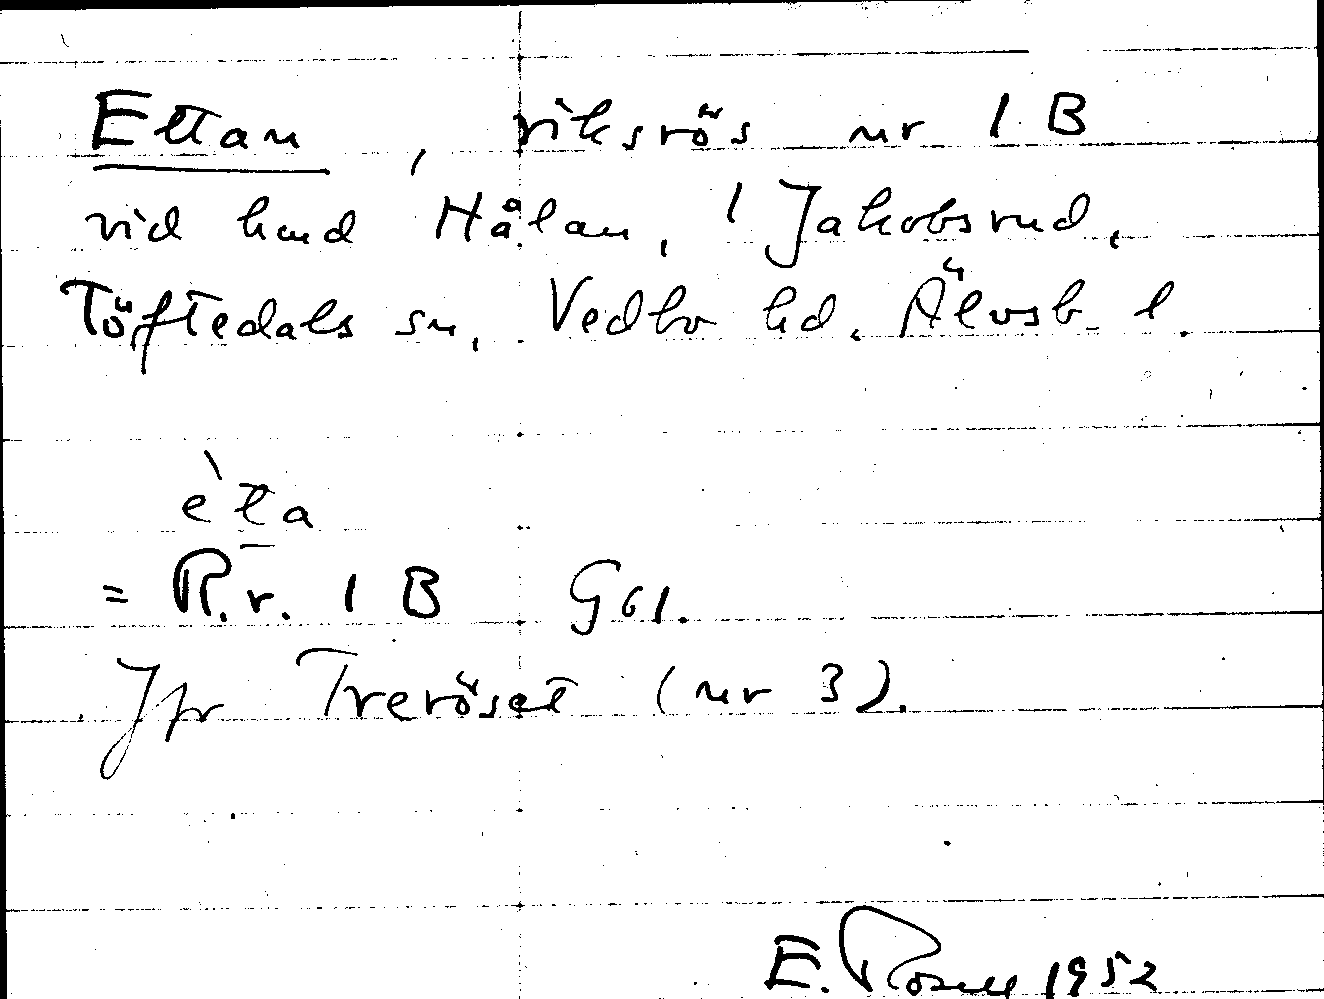 Ettan, riksrös nr 1 B
vid hmd Hålan, 1 Jakobsrud,
Töftedals sn, Vedbo hd. Älvsb. l.
èta
= R.r. 1 B G61.
Jfr Treröset (nr 3).
E. Rosell 1952